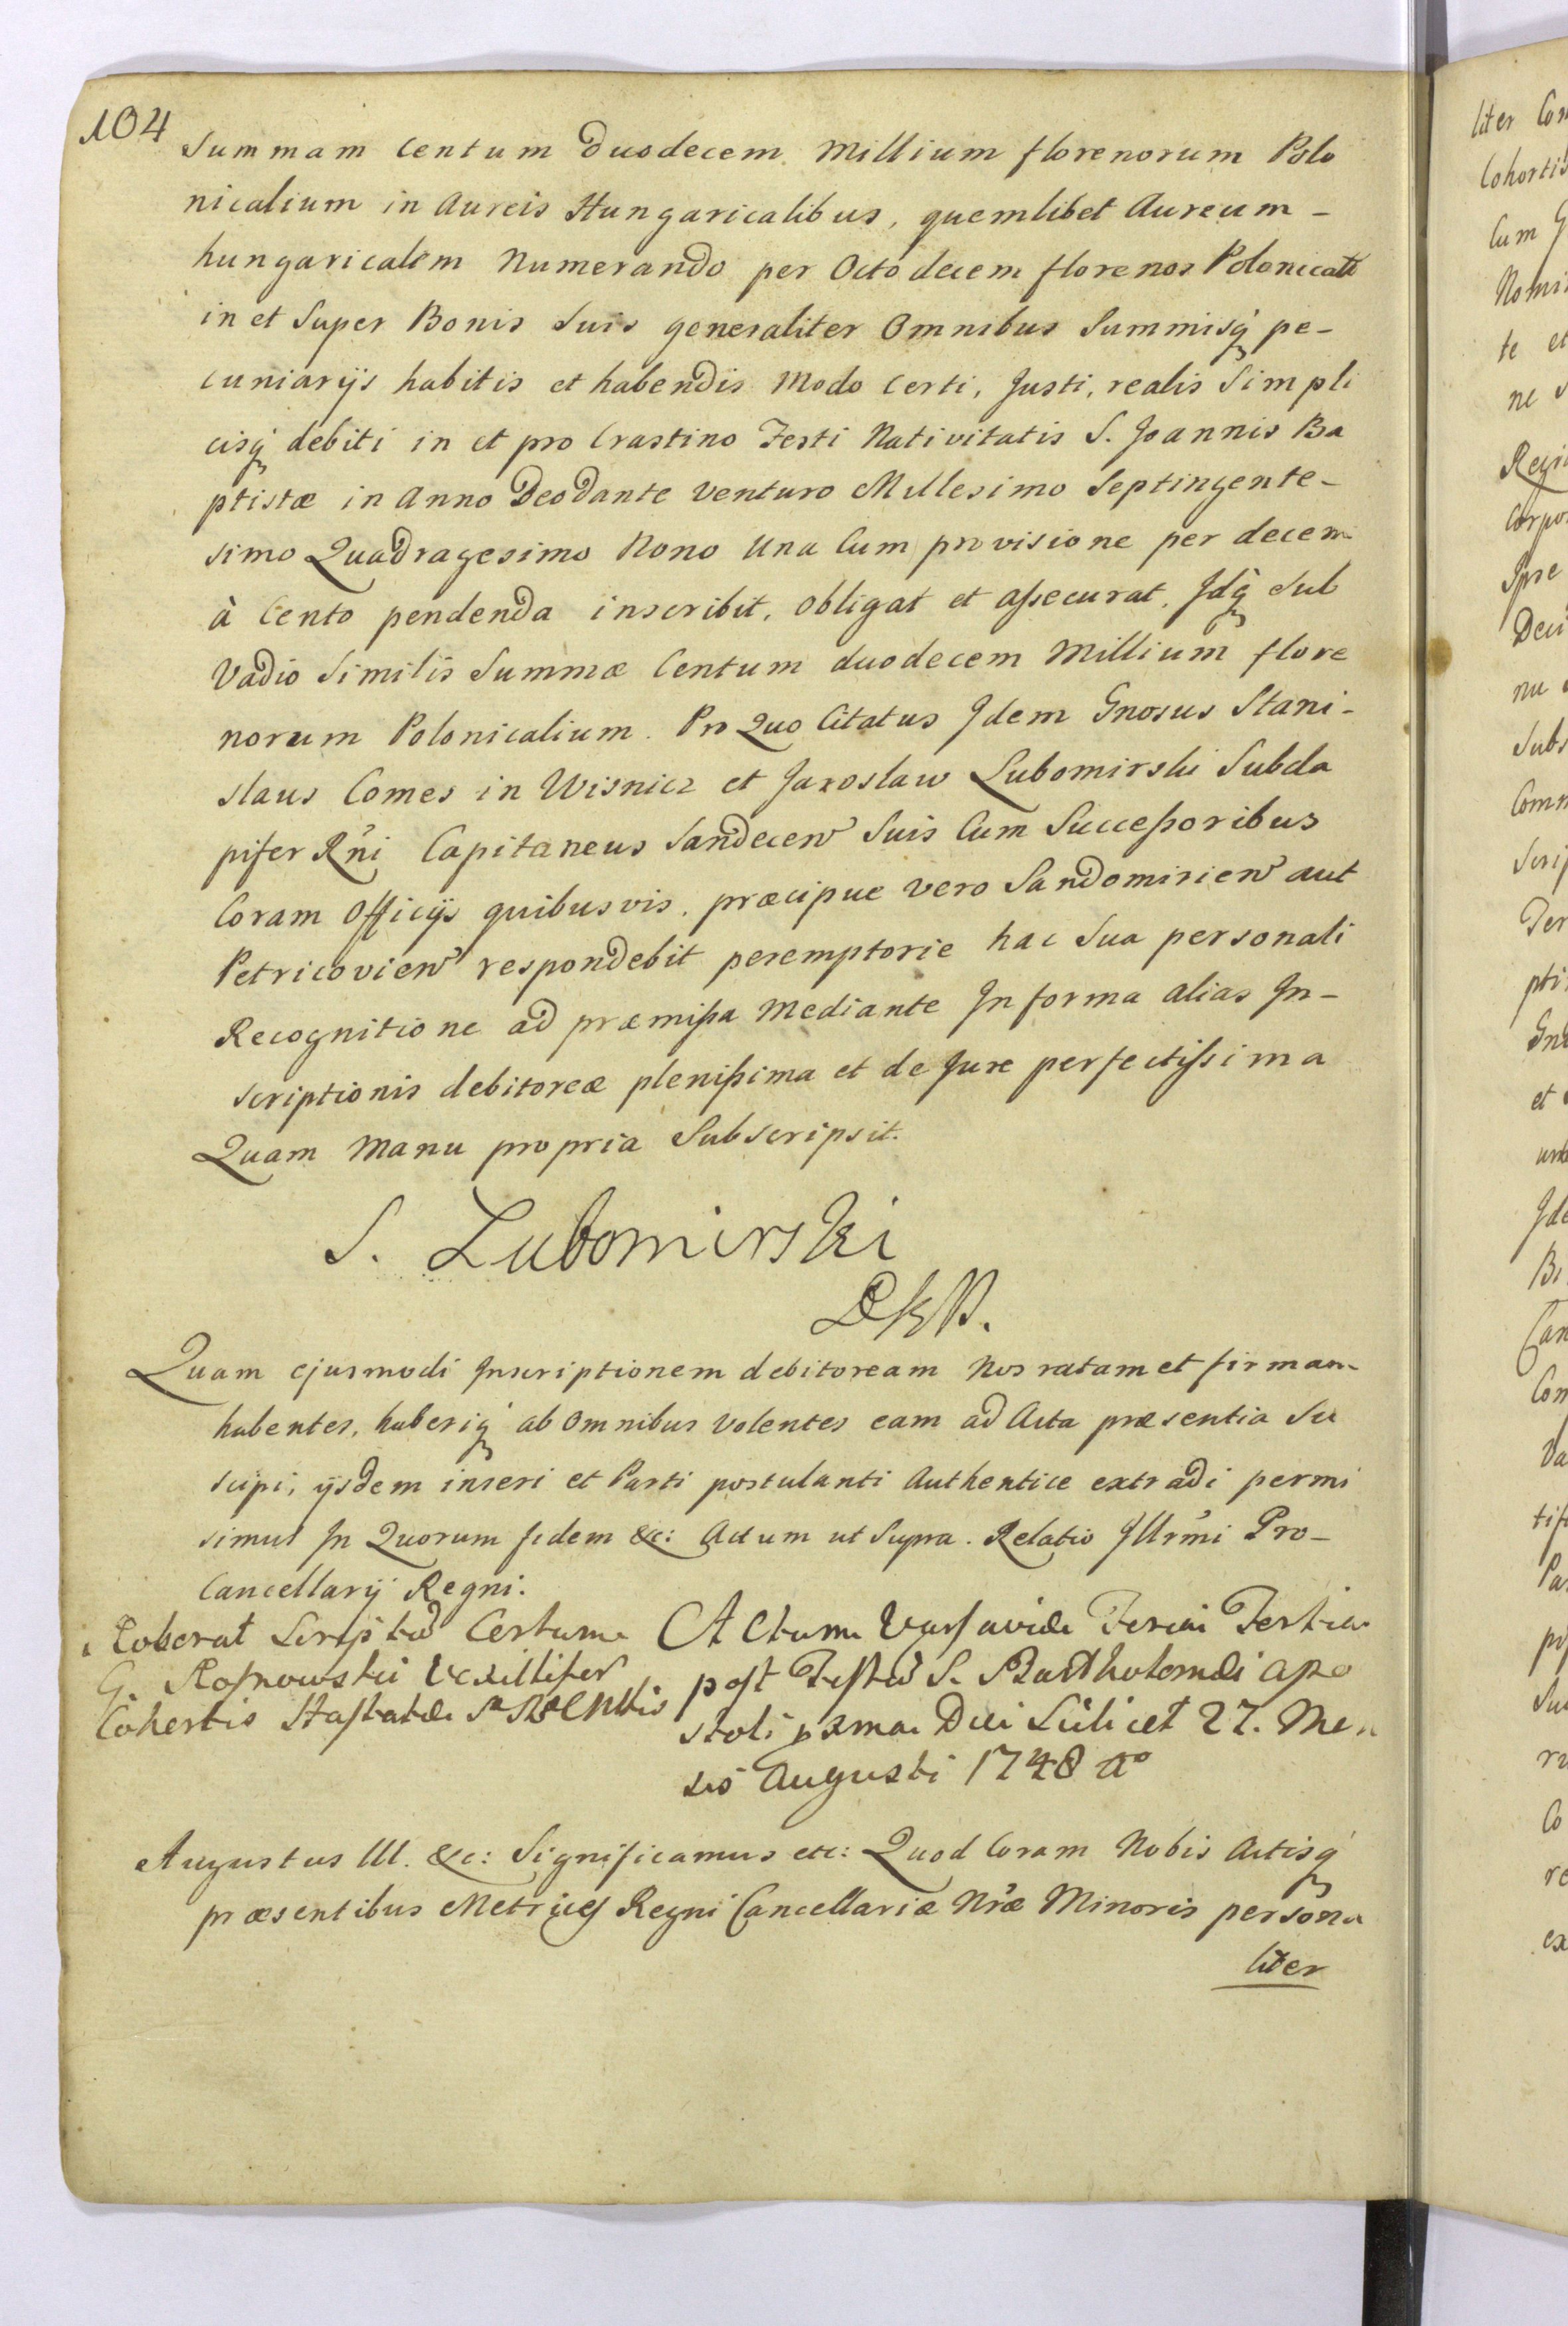 104
Summam Centum duodecem Millium florenorum Polo
nicalium in Aureis Hungaricalibus, quemlibet Aureum -
hungaricalem Numerando per Octodecem florenos Polonicales
in et Super Bonis Suis generaliter Omnibus Summisq pe-
cuniarijs habitis et habendis Modo Certi, Justi, realis Simpli
cisq debiti in et pro Crastino Festi Nativitatis S. Joannis Ba
ptistæ in Anno Deo Dante venturo Millesimo Septingente-
simo Quadragesimo Nono Una Cum provisione per decem
à Cento pendenda inscribit, obligat et assecurat, Jdq Sub
Vadio Similis Summæ Centum duodecem Millium flore
norum Polonicalium. Pro Quo Citatus Jdem Gnosus Stani-
slaus Comes in Wisnicz et Jaroslaw Lubomirski Subda
pifer Rni Capitaneus Sandecen Suis Cum Successoribus
Coram Officijs quibusvis, præcipue vero Sandomirien aut
Petricovien respondebit peremptorie hac Sua personali
Recognitione ad præmissa Mediante Jn forma alias Jn-
scriptionis debitoreæ plenissima et de Jure perfectissima
Quam Manu propria Subscripsit.
S. Lubomirski
Quam ejusmodi Jnscriptionem debitoream Nos ratam et firmam
habentes, haberiq ab Omnibus Volentes eam ad Acta præsentia Su
scipi, ijsdem inseri et Parti postulanti Authentice extradi permi
simus Jn Quorum fidem &c: Actum ut Supra. Relatio Jllrmi Pro-
Cancellarij Regni.
Roborat Scriptu Certum
G. Rosnowski Vexillifer
Cohortis Hastatæ
Actum Varsaviæ Feria Tertia
post Festu S. Bartholomæi Apo
stoli pxma Die Scilicet 27. Men
sis Augusti 1748 Ao
Augustus III. &c: Significamus etc: Quod Coram Nobis Actisq
præsentibus Metrices Regni Cancellariæ Nræ Minoris persona
liter